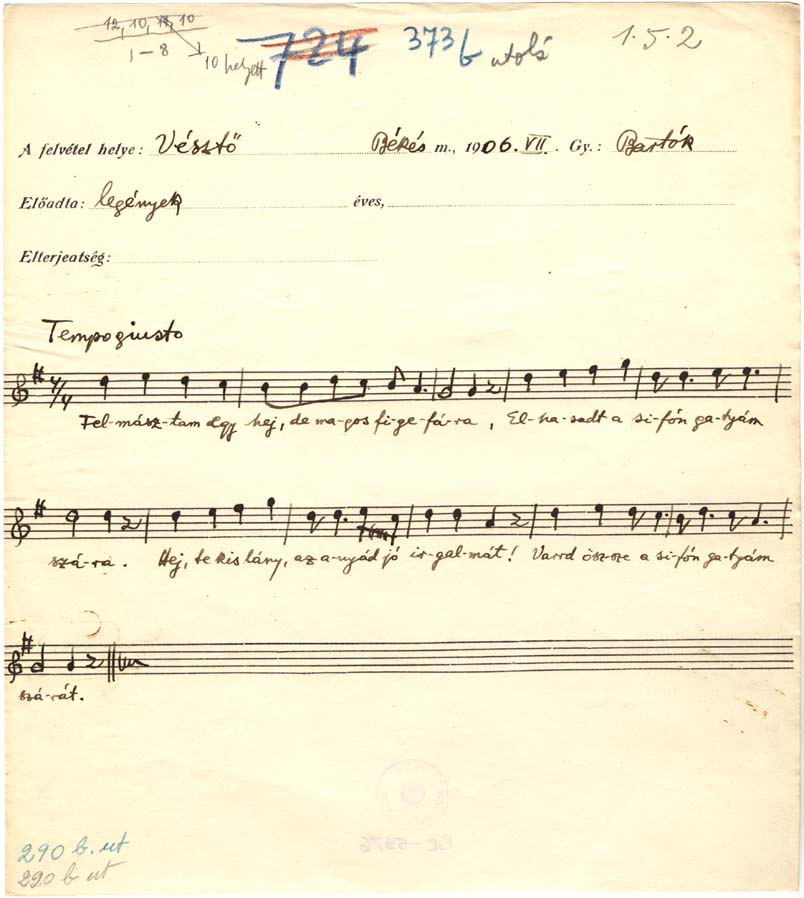 12, 10, 11, 10
1 – 8
10 helyett
724
373 b utolsó
1.5.2
A felvétel helye: Vésztő Békés m., 1906. VII. Gy.: Bartók
Előadta: legények éves,
Elterjeatség:
Tempo giusto
4/4
Fel-mász-tam egy hej, de ma-gos fi-ge-fá-ra, El-ha-sadt a si-fón ga-tyám
szá-ra. Hej, te kis lány, az a-nyád jó ir-gal-mát! Varrd ösz-sze a si-fón ga-tyám
szá-rát.
290 b. ut
290 b ut